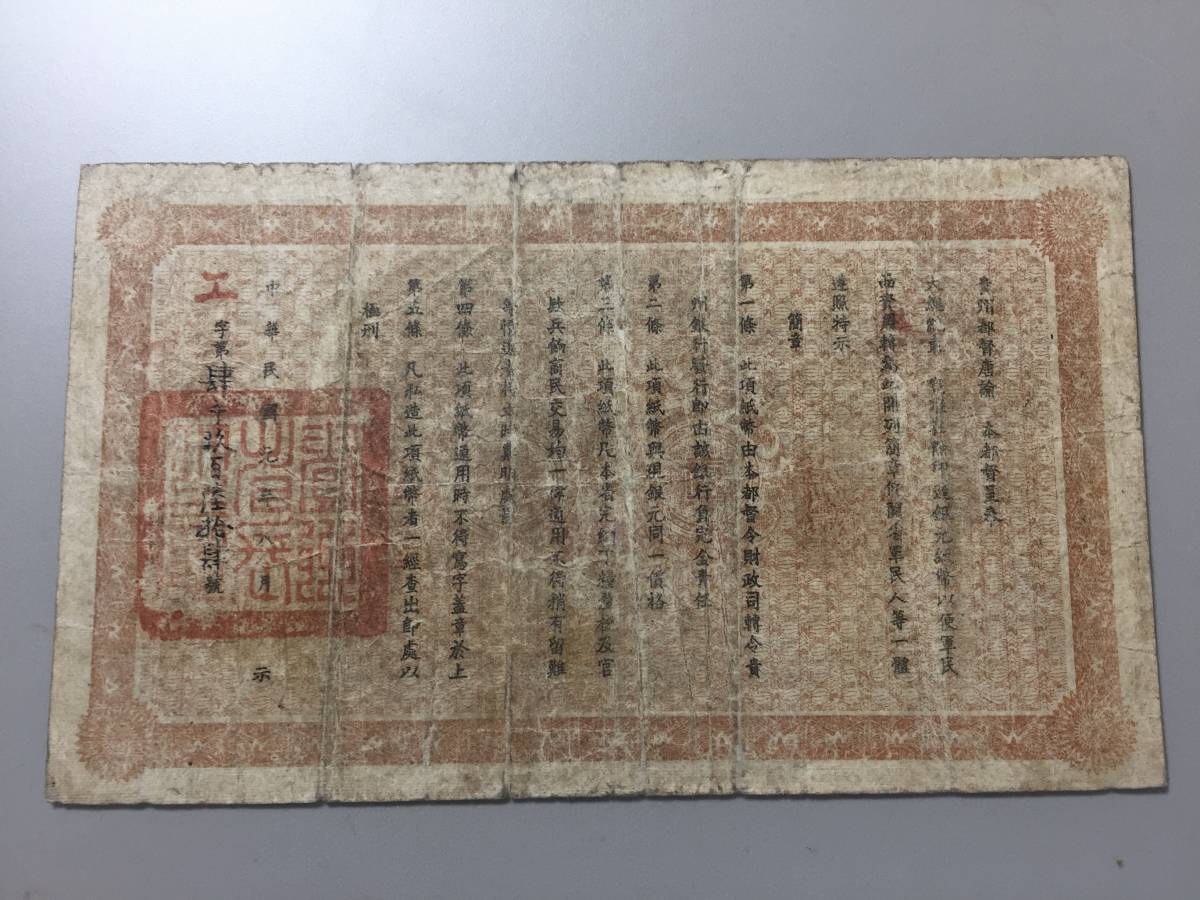 貴州都督唐諭　本都督蒞黔
大總統
品資周轉為此開列簡章仰闔省軍民人等一體
遵照特示
簡章
第一條　此項紙幣由本都督令財政司轉令貴
州銀行發行即由該銀行負完全責任
第二條　此項紙幣與現銀元同一價格
第三條　此項紙幣凡本省完納丁糧釐稅及官
款兵餉商民交易均一律通用不得稍有留難
第四條　此項紙幣通用時不得寫字蓋章於上
第五條　凡私造此項紙幣者一經查出即處以
極刑
中華民國元年八月　示
工字第肆千玖百陸拾肆號